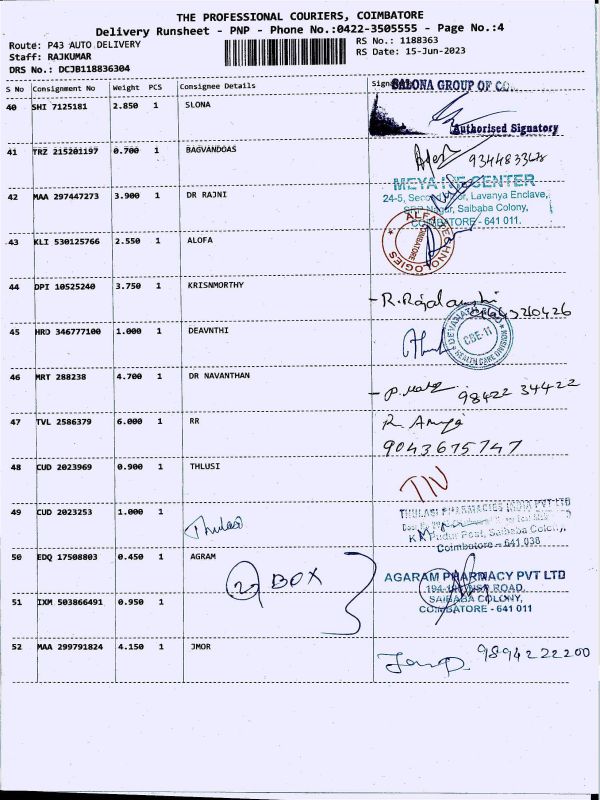 THE PROFESSIONAL COURIERS, COIMBATORE
Delivery Runsheet - PNP - Phone No.:0422-3505555 - Page No.:4
Route: P43 AUTO DELIVERY
RS No.: 1188363
Staff: RAJKUMAR
RS Date: 15-Jun-2023
DRS No.: DCJB118836304
S No Consignment No Weight PCS Consignee Details
SALONA GROUP OF CO.
40 SHI 7125181 2.850 1 SLONA
Authorised Signatory
41 TRZ 215201197 0.700 1 BAGVANDOAS
42 MAA 297447273 3.900 1 DR RAJNI
CENTER
24-5, Lavanya Enclave,
Nagar, Saibaba Colony,
COIMBATORE - 641 011.
43 KLI 530125766 2.550 1 ALOFA
ALFA TECHNOLOGIES
COIMBATORE
44 DPI 10525240 3.750 1 KRISNMORTHY
45 HRD 346777100 1.000 1 DEAVNTHI
CBE-11
HEALTH CARE DIVISION
46 MRT 288238 4.700 1 DR NAVANTHAN
98422 34422
47 TVL 2586379 6.000 1 RR
9043675747
48 CUD 2023969 0.900 1 THLUSI
49 CUD 2023253 1.000 1
Thulasi
THULASI PHARMACIES INDIA PVT LTD
K K Pudur Post, Saibaba Colony,
Coimbatore - 641 038
50 EDQ 17508803 0.450 1 AGRAM
2 BOX
AGARAM PHARMACY PVT LTD
NSR ROAD,
SAIBABA COLONY,
COIMBATORE - 641 011
51 IXM 503866491 0.950 1
52 MAA 299791824 4.150 1 JMOR
9894222200